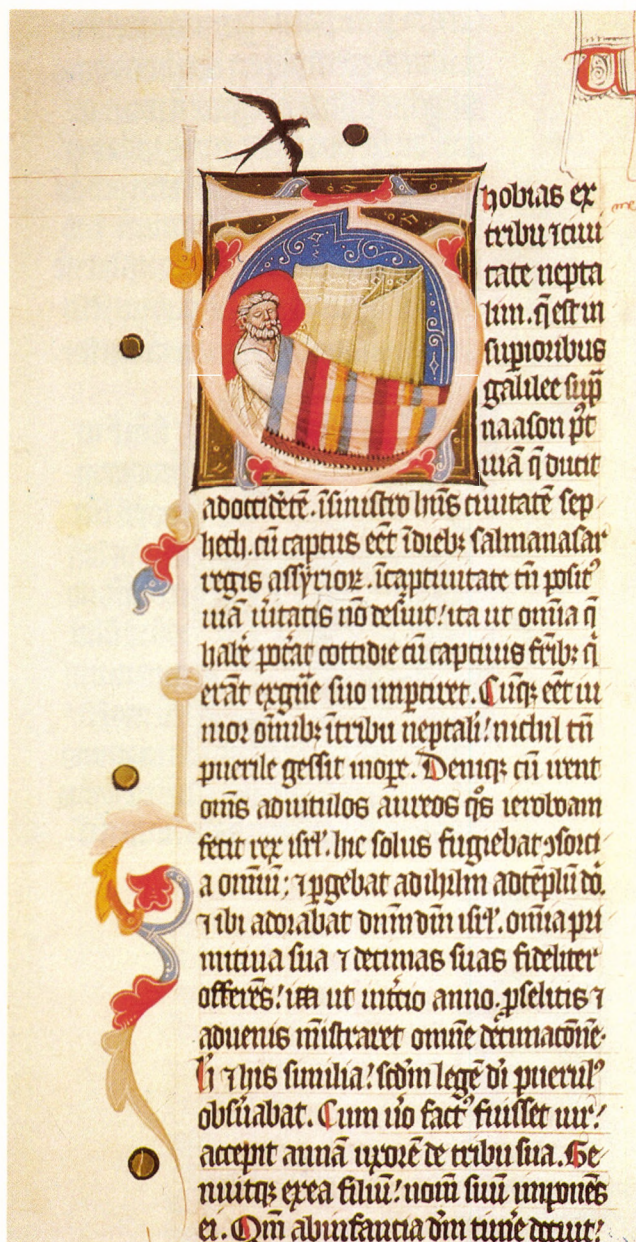 Thobias ex
tribu ⁊ ciui
tate nepta
lim. q̄ est in
suꝑioribus
galilee sup̄
naason pꝰt
uiā q̄ ducit
ad occidētē. ī sinistro hn̄s ciuitatē sep
hech. cū captus eēt ī diebꝫ salmanasar
regis assyrioꝝ. ī captiuitate tn̄ positꝰ
uiā ūitatis nō deseruit/ ita ut om̄ia q̄
habe᷒ pot̄at cottidie cū captiuis fr̄ibꝫ q̄
erāt ex gn̄e suo imꝑtiret. Cūqꝫ eēt iu
nior om̄ibꝫ ī tribu neptali/ nichil tn̄
puerile gessit ī oꝑe. Deniqꝫ cū irent
om̄s ad uitulos aureos q̊s ieroboam
fecit rex isrl̄. hic solus fugiebat ꝯsorci
a om̄iū; ⁊ ꝑgebat ad ihrlm̄ ad tēplū dō.
⁊ ibi adorabat dn̄m dm̄ isrl̄. om̄ia pri
mitiua sua ⁊ decimas suas fideliter
offerēs/ ita ut in t̄cio anno. ꝓselitis ⁊
aduenis mīstraret omne decimacōnē.
h̄ ⁊ his similia/ scdm̄ legē dī puerulꝰ
obs̄uabat. Cum ūo factꝰ fuisset uir/
accepit annā uxorē de tribu sua. Ge
nuitqꝫ ex ea filiū/ nom̄ suū imponēs
ei. Qm̄ ab infancia dm̄ timē docuit/